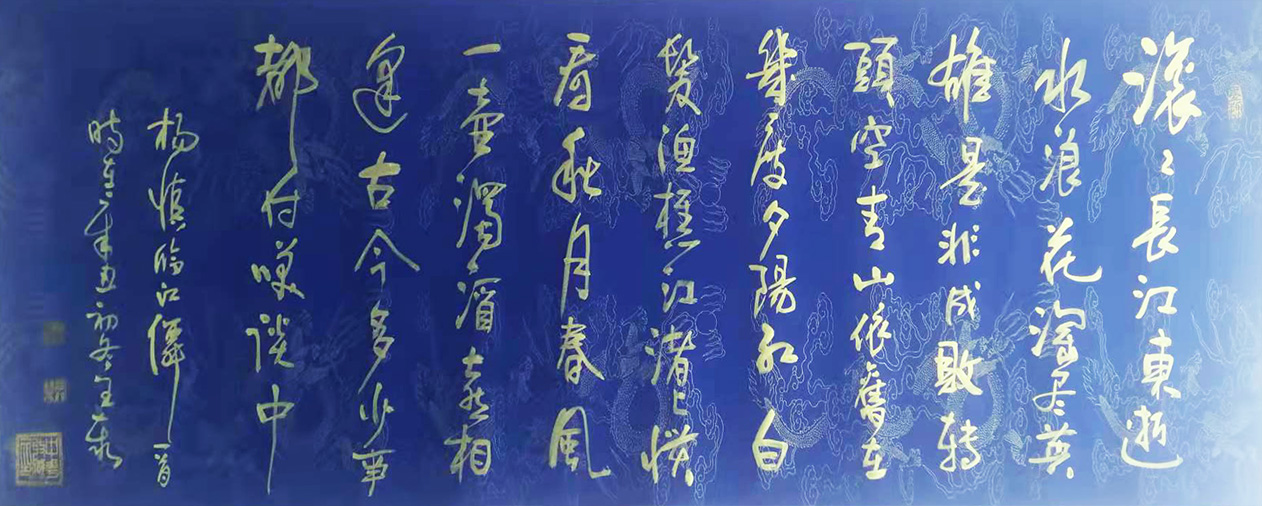 滚〻長江東逝
水浪花淘尽英
雄是非成敗轉
頭空青山依舊在
幾度夕陽红白
髮渔樵江渚上惯
看秋月春風
一壶濁酒喜相
逢古今多少事
都付笑談中
杨慎临江僊一首
時在辛丑初冬